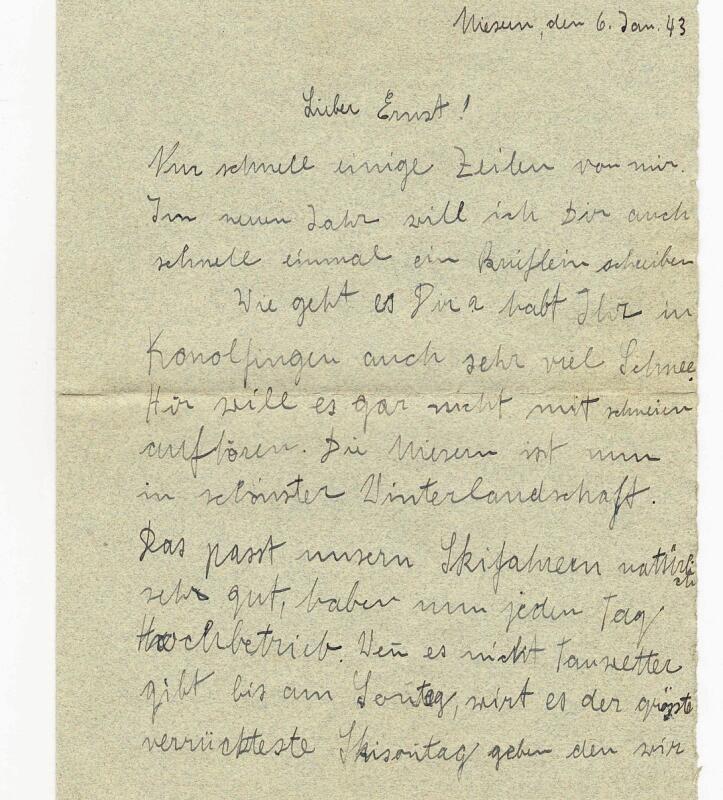 Miesern, den 6. Jan. 43
Lieber Ernst!
Nur schnell einige Zeilen von mir.
Im neuen Jahr will ich Dir auch
schnell einmal ein Brieflein schreiben
Wie geht es Dir? habt Ihr in
Konolfingen auch sehr viel Schnee
Hir will es gar nicht mit schneien
aufhören. Die Miesern ist nun
in schönster Winterlandschaft.
Das passt unsern Skifahrern natürli
ch
sehr gut, haben nun jeden Tag
Hochbetrieb. Wen̄ es nicht Tauwetter
gibt bis am Sontag, wirt es der gröste
verrückteste Skisontag geben den wir